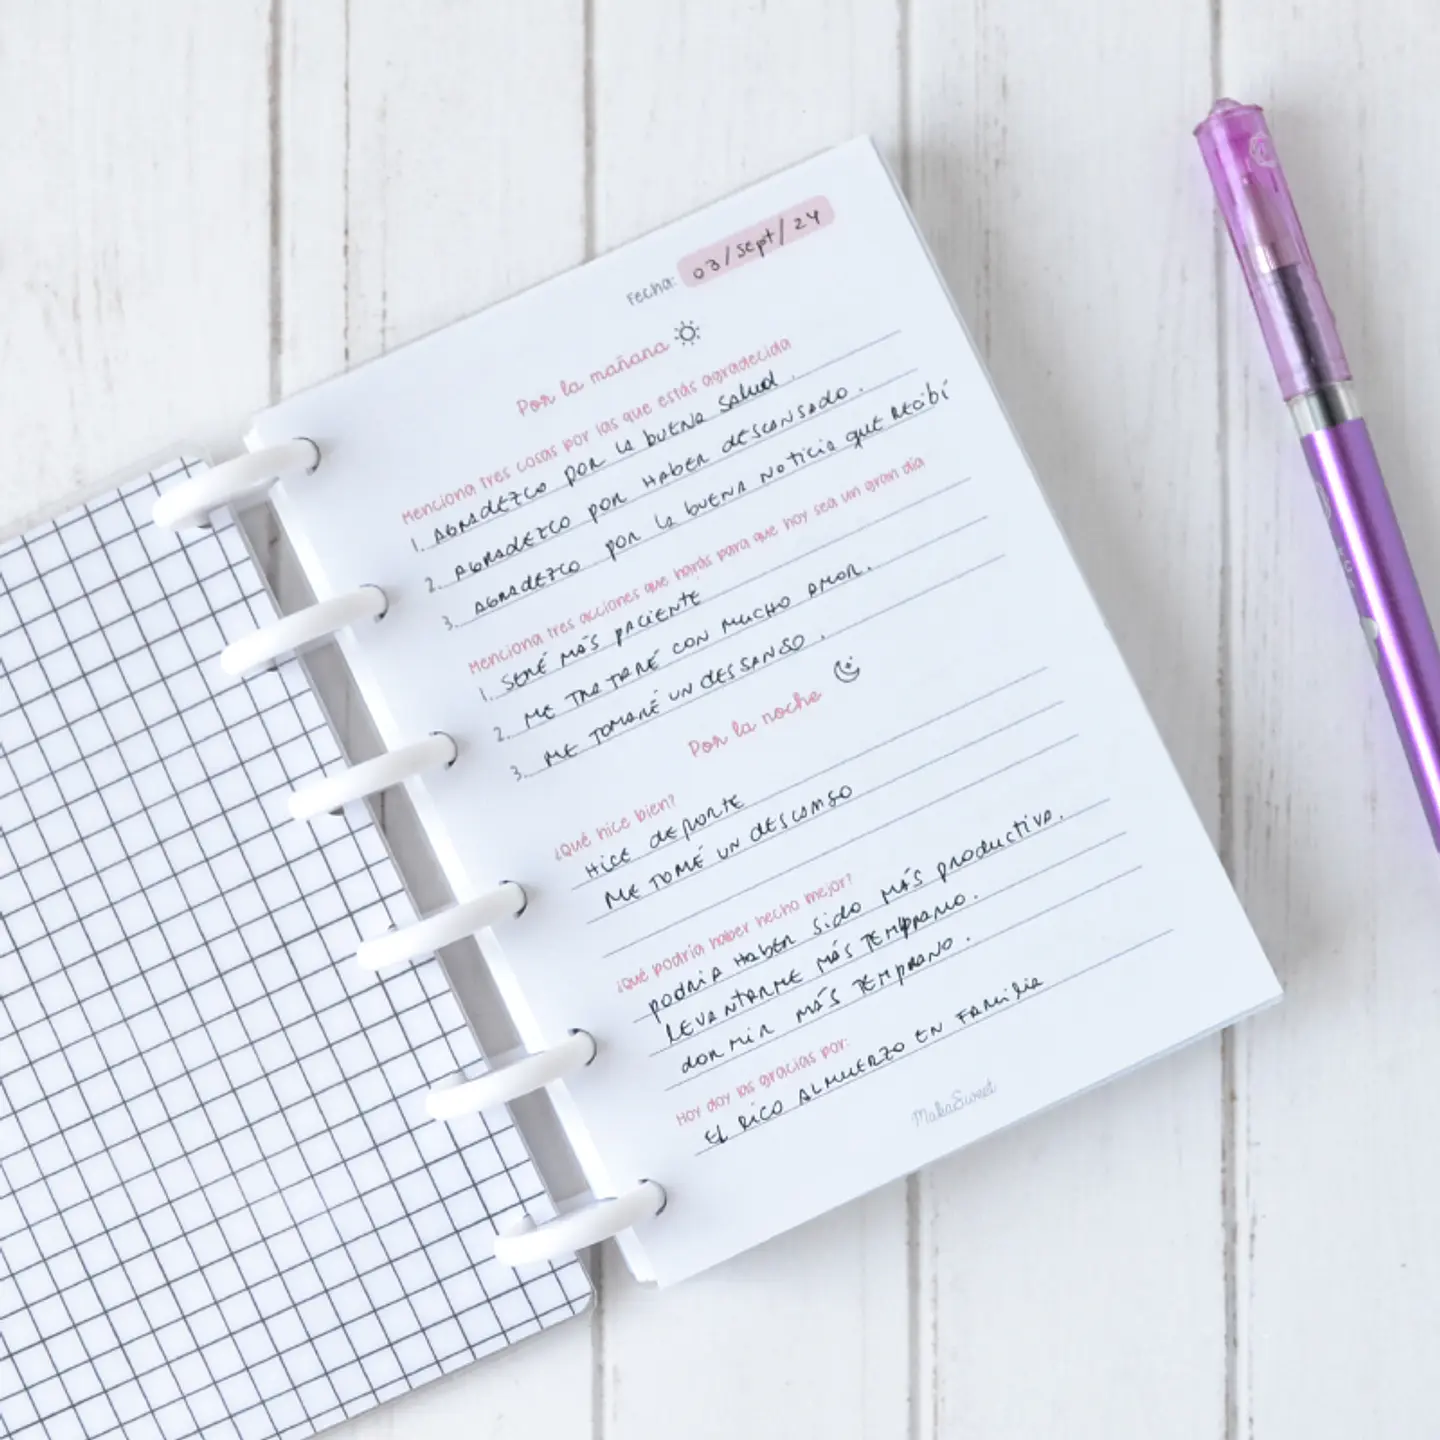 Fecha: 03/sept/24
Por la mañana
Menciona tres cosas por las que estás agradecida
1. AGRADEZCO POR LA BUENA SALUD.
2. AGRADEZCO POR HABER DESCANSADO.
3. AGRADEZCO POR LA BUENA NOTICIA QUE RECIBÍ
Menciona tres acciones que harás para que hoy sea un gran día
1. SERÉ MÁS PACIENTE
2. ME TRATARÉ CON MUCHO AMOR.
3. ME TOMARÉ UN DESCANSO.
Por la noche
¿Qué hice bien?
HICE DEPORTE
ME TOMÉ UN DESCANSO
¿Qué podría haber hecho mejor?
PODRIA HABER SIDO MÁS PRODUCTIVA.
LEVANTARME MÁS TEMPRANO.
DORMIR MÁS TEMPRANO.
Hoy doy las gracias por:
EL RICO ALMUERZO EN FAMILIA
MakaSweet